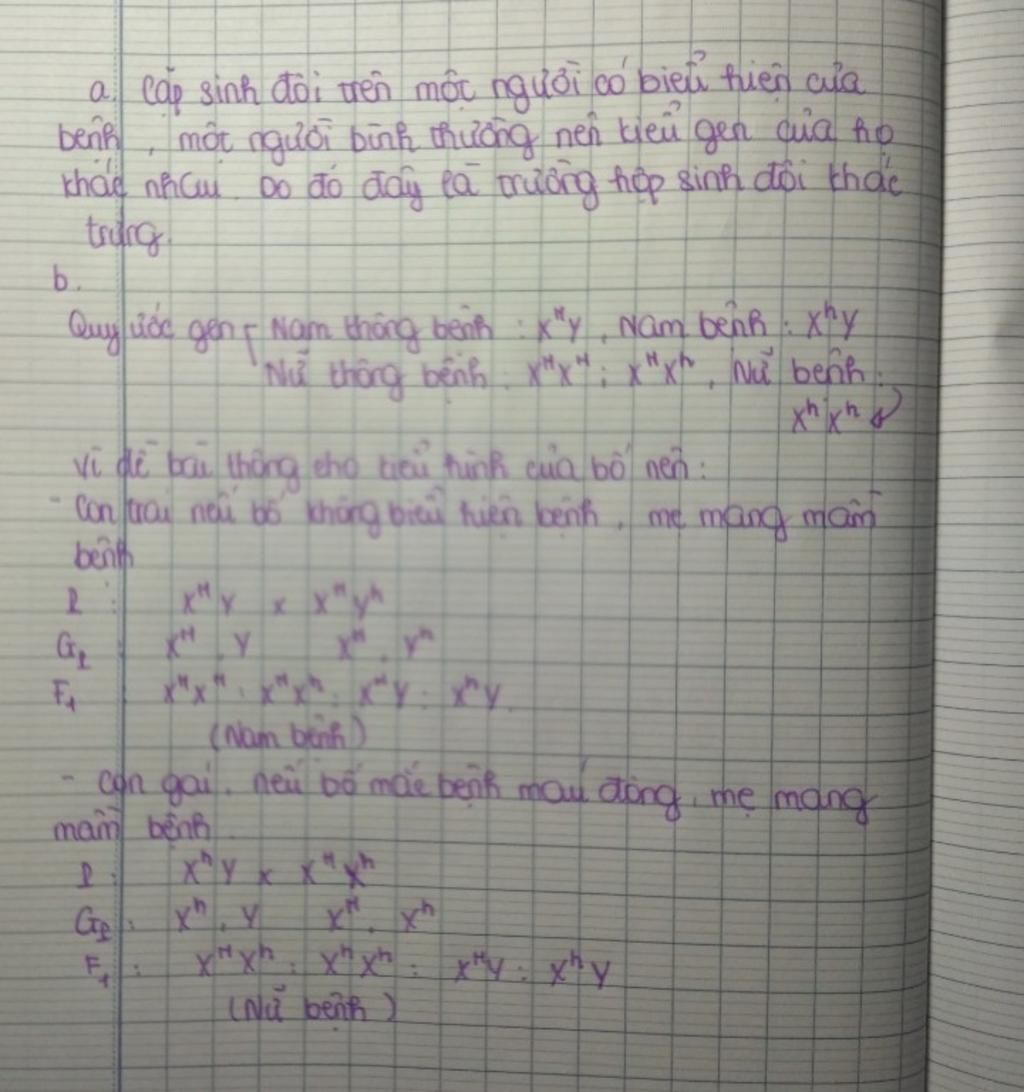 a. Cặp sinh đôi trên một người có biểu hiện của
bệnh, một người bình thường nên kiểu gen của họ
khác nhau. Do đó đây là trường hợp sinh đôi khác
trứng.
b.
Quy ước gen { Nam không bệnh : XᴴY, Nam bệnh : XʰY
Nữ không bệnh : XᴴXᴴ ; XᴴXʰ, Nữ bệnh :
XʰXʰ
Vì đề bài không cho kiểu hình của bố nên :
- Con trai nếu bố không biểu hiện bệnh, mẹ mang mầm
bệnh
P : XᴴY x XᴴYʰ
Gₚ Xᴴ, Y Xᴴ, Yʰ
F₁ XᴴXᴴ : XᴴXʰ : XᴴY : XʰY
(Nam bệnh)
- Con gái, nếu bố mắc bệnh máu đông, mẹ mang
mầm bệnh
P : XʰY x XᴴXʰ
Gₚ : Xʰ, Y Xᴴ, Xʰ
F₁ : XᴴXʰ : XʰXʰ : XᴴY : XʰY
(Nữ bệnh)